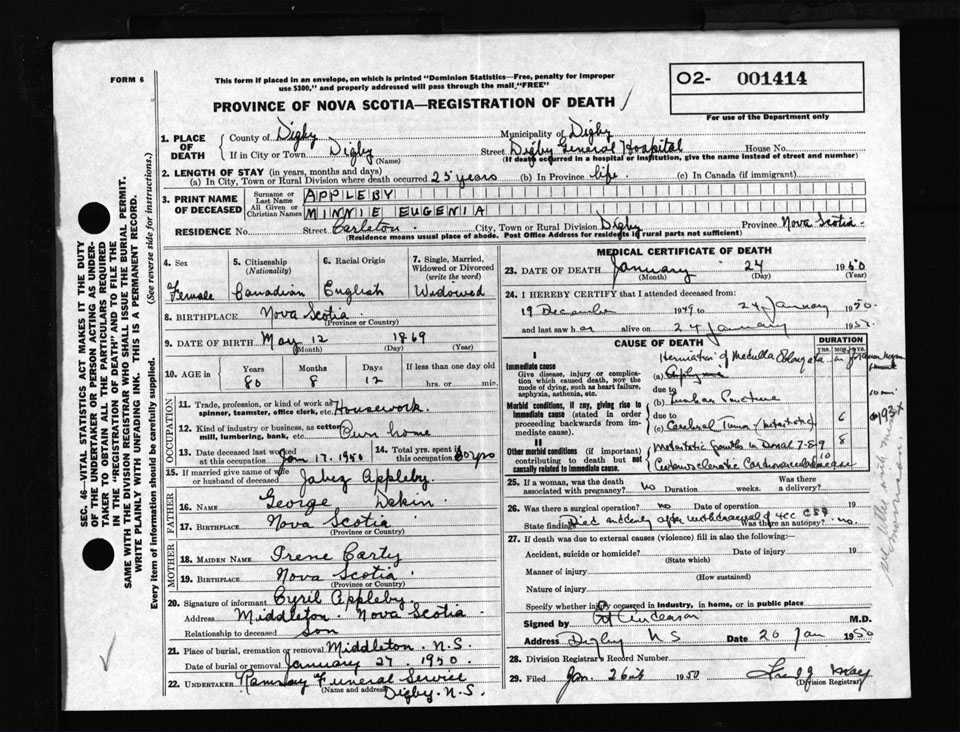 FORM 6
This form if placed in an envelope, on which is printed "Dominion Statistics—Free, penalty for improper
use $300," and properly addressed will pass through the mail "FREE"
O2- 001414
For use of the Department only
PROVINCE OF NOVA SCOTIA—REGISTRATION OF DEATH
SEC. 46—VITAL STATISTICS ACT MAKES IT THE DUTY
OF THE UNDERTAKER OR PERSON ACTING AS UNDER-
TAKER TO OBTAIN ALL THE PARTICULARS REQUIRED
IN THE "REGISTRATION OF DEATH" AND TO FILE THE
SAME WITH THE DIVISION REGISTRAR WHO SHALL ISSUE THE BURIAL PERMIT.
WRITE PLAINLY WITH UNFADING INK. THIS IS A PERMANENT RECORD.
Every item of information should be carefully supplied. (See reverse side for instructions.)
1. PLACE OF DEATH County of Digby Municipality of Digby
If in City or Town Digby (Name) Street Digby General Hospital House No.
(If death occurred in a hospital or institution, give the name instead of street and number)
2. LENGTH OF STAY (in years, months and days)
(a) In City, Town or Rural Division where death occurred 25 years (b) In Province life. (c) In Canada (if immigrant)
3. PRINT NAME OF DECEASED Surname or Last Name APPLEBY
All Given or Christian Names MINNIE EUGENIA
RESIDENCE No. Street Carleton. City, Town or Rural Division Digby Province Nova Scotia.
(Residence means usual place of abode. Post Office Address for residents in rural parts not sufficient)
4. Sex Female
5. Citizenship (Nationality) Canadian
6. Racial Origin English
7. Single, Married, Widowed or Divorced (write the word) Widowed
8. BIRTHPLACE Nova Scotia (Province or Country)
9. DATE OF BIRTH May 12 1869
(Month) (Day) (Year)
10. AGE in Years Months Days If less than one day old
80 8 12 hrs. or min.
OCCUPATION
11. Trade, profession, or kind of work as spinner, teamster, office clerk, etc. Housework.
12. Kind of industry or business, as cotton mill, lumbering, bank, etc. Own home
13. Date deceased last worked at this occupation Jan 17. 1950 14. Total yrs. spent in this occupation 60 yrs
15. If married give name of wife or husband of deceased Jabez Appleby.
FATHER
16. Name George Dakin
17. Birthplace Nova Scotia
(Province or Country)
MOTHER
18. Maiden Name Irene Carty
19. Birthplace Nova Scotia.
(Province or Country)
20. Signature of informant Cyril Appleby.
Address Middleton. Nova Scotia.
Relationship to deceased Son
21. Place of burial, cremation or removal Middleton. N.S.
Date of burial or removal January 27. 1950.
22. Undertaker Ramsay Funeral Service
(Name and address) Digby. N.S.
MEDICAL CERTIFICATE OF DEATH
23. DATE OF DEATH January 24 1950
(Month) (Day) (Year)
24. I HEREBY CERTIFY that I attended deceased from:
19 December 1949 to 24 January 1950.
and last saw her alive on 24 January 1950.
CAUSE OF DEATH DURATION
YRS. MOS. DYS.
I
Immediate cause
Give disease, injury or complication which caused death, NOR the mode of dying, such as heart failure, asphyxia, asthenia, etc.
Herniation of Medulla Oblongata
(a)
due to
Morbid conditions, if any, giving rise to immediate cause (stated in order proceeding backwards from immediate cause).
(b) Lumbar Puncture 10 min
due to
(c) Cerebral Tumor (metastatic) 6
II
Other morbid conditions (if important) contributing to death but not causally related to immediate cause.
Metastatic growths in Dorsal 7-8-9 8
10
25. If a woman, was the death associated with pregnancy? no Duration weeks. Was there a delivery?
26. Was there a surgical operation? no Date of operation 19
State findings Died suddenly after withdrawal of 4cc CSF Was there an autopsy? no.
27. If death was due to external causes (violence) fill in also the following:—
Accident, suicide or homicide? Date of injury 19
(State which)
Manner of injury
(How sustained)
Nature of injury
Specify whether injury occurred in industry, in home, or in public place
Signed by M.D.
Address Digby N S Date 26 Jan 1950
28. Division Registrar's Record Number
29. Filed Jan. 26th 1950
(Division Registrar)